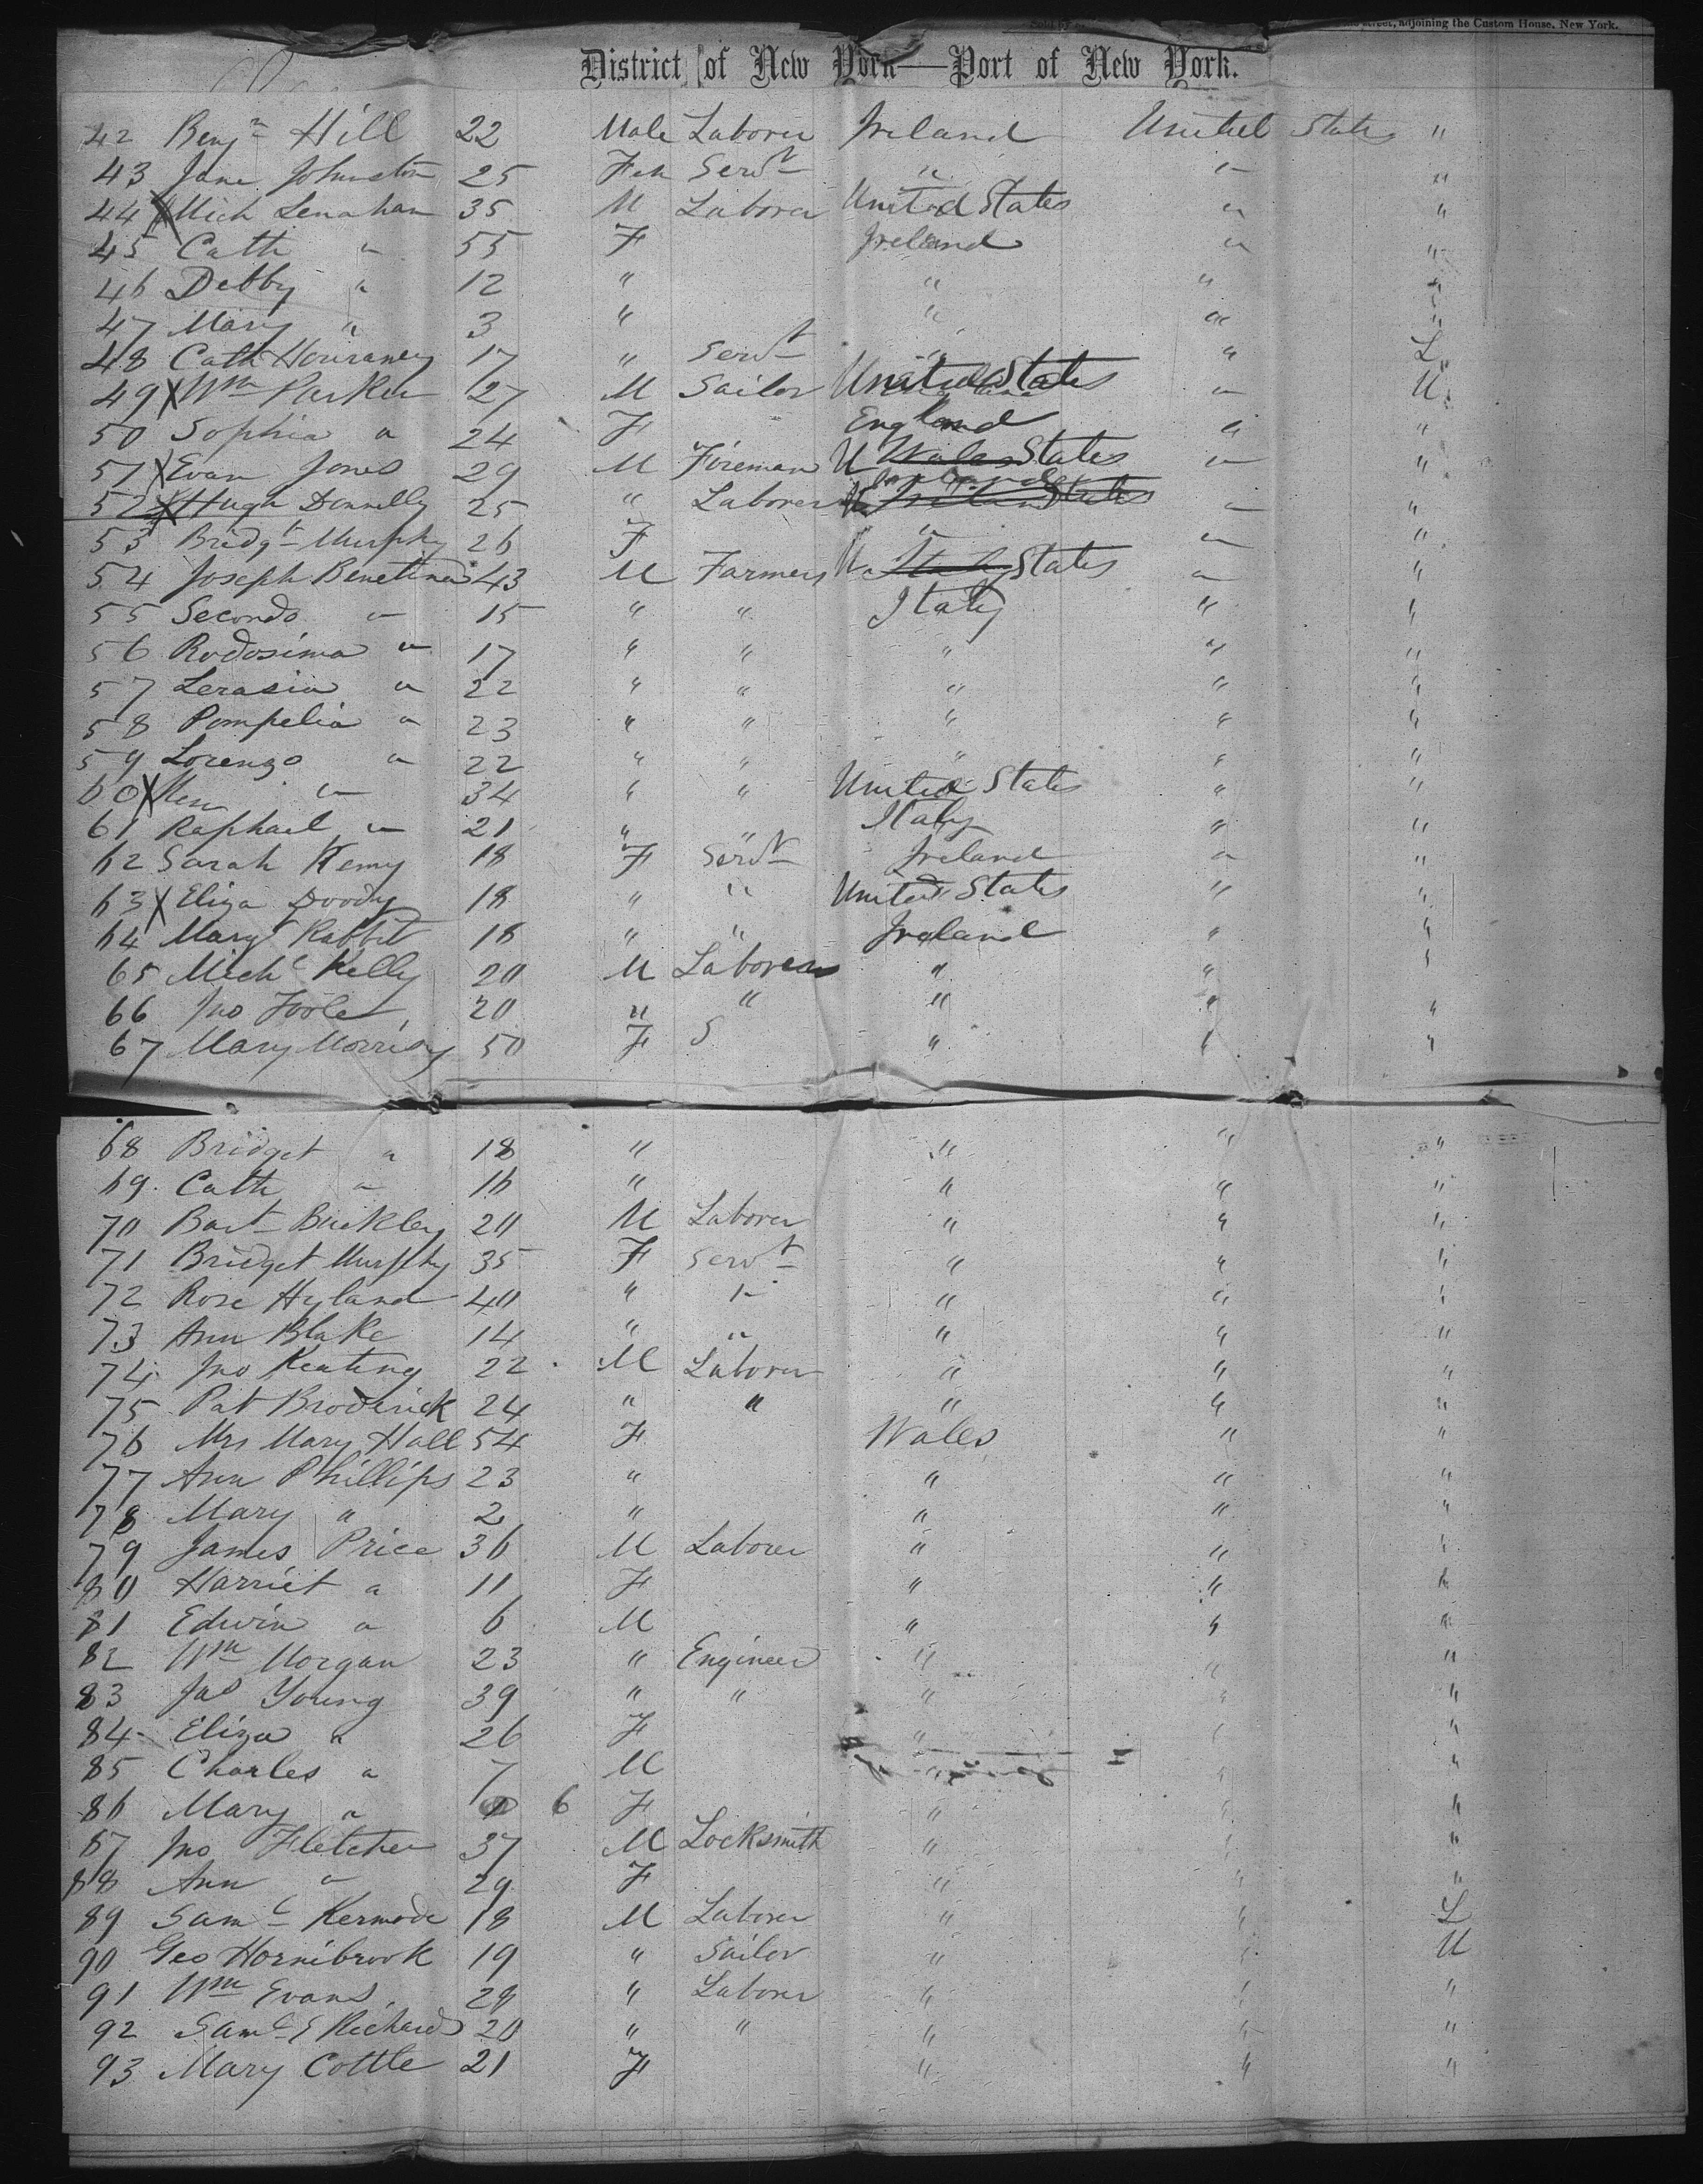 street, adjoining the Custom House, New York.
District of New York—Port of New York.
42 Benjn Hill 22 Male Laborer Ireland United States "
43 Jane Johnston 25 Fem Servt " " "
44 X Mich Lenahan 35 M Laborer United States " "
45 Cath " 55 F Ireland " "
46 Debby " 12 " " " "
47 Mary " 3 " " " "
48 Cath Houraney 17 " Servt " " L
49 X Wm Parker 27 M Sailor United States " U
50 Sophia " 24 F England " "
51 X Evan Jones 29 M Fireman U Wales States " "
52 X Hugh Donnelly 25 " Laborer Ireland States " "
53 Bridgt Murphy 26 F " " "
54 Joseph Benetina 43 M Farmers U Italy States " "
55 Secondo " 15 " " Italy " "
56 Rodosima " 17 " " " " "
57 Lerasia " 22 " " " " "
58 Pompelia " 23 " " " " "
59 Lorenzo " 22 " " " " "
60 X " 34 " " United States " "
61 Raphael " 21 " " Italy " "
62 Sarah Kemy 18 F Servt Ireland " "
63 X Eliza Doody 18 " " United States " "
64 Margt Rabbit 18 " " Ireland " "
65 Michl Kelly 20 M Laborers " " "
66 Jno Toole 20 " " " " "
67 Mary Morrisy 50 F S " " "
68 Bridget " 18 " " " "
69 Cath " 16 " " " "
70 Bart Buckley 20 M Laborer " " "
71 Bridget Murphy 35 F Servt " " "
72 Rose Hyland 40 " " " " "
73 Ann Blake 14 " " " " "
74 Jno Keating 22 M Laborer " " "
75 Pat Broderick 24 " " " " "
76 Mrs Mary Hall 54 F Wales " "
77 Ann Phillips 23 " " " "
78 Mary " 2 " " " "
79 James Price 36 M Laborer " " "
80 Harriet " 11 F " " "
81 Edwin " 6 M " " "
82 Wm Morgan 23 " Engineer " " "
83 Jas Young 39 " " " " "
84 Eliza " 26 F " " "
85 Charles " 7 M " " "
86 Mary " 6 F " " "
87 Jno Fletcher 37 M Locksmith " " "
88 Ann " 29 F " " "
89 Saml Kermode 18 M Laborer " " L
90 Geo Hornibrook 19 " Sailor " " U
91 Wm Evans 28 " Laborer " " "
92 Saml S Richards 20 " " " " "
93 Mary Cottle 21 F " " "